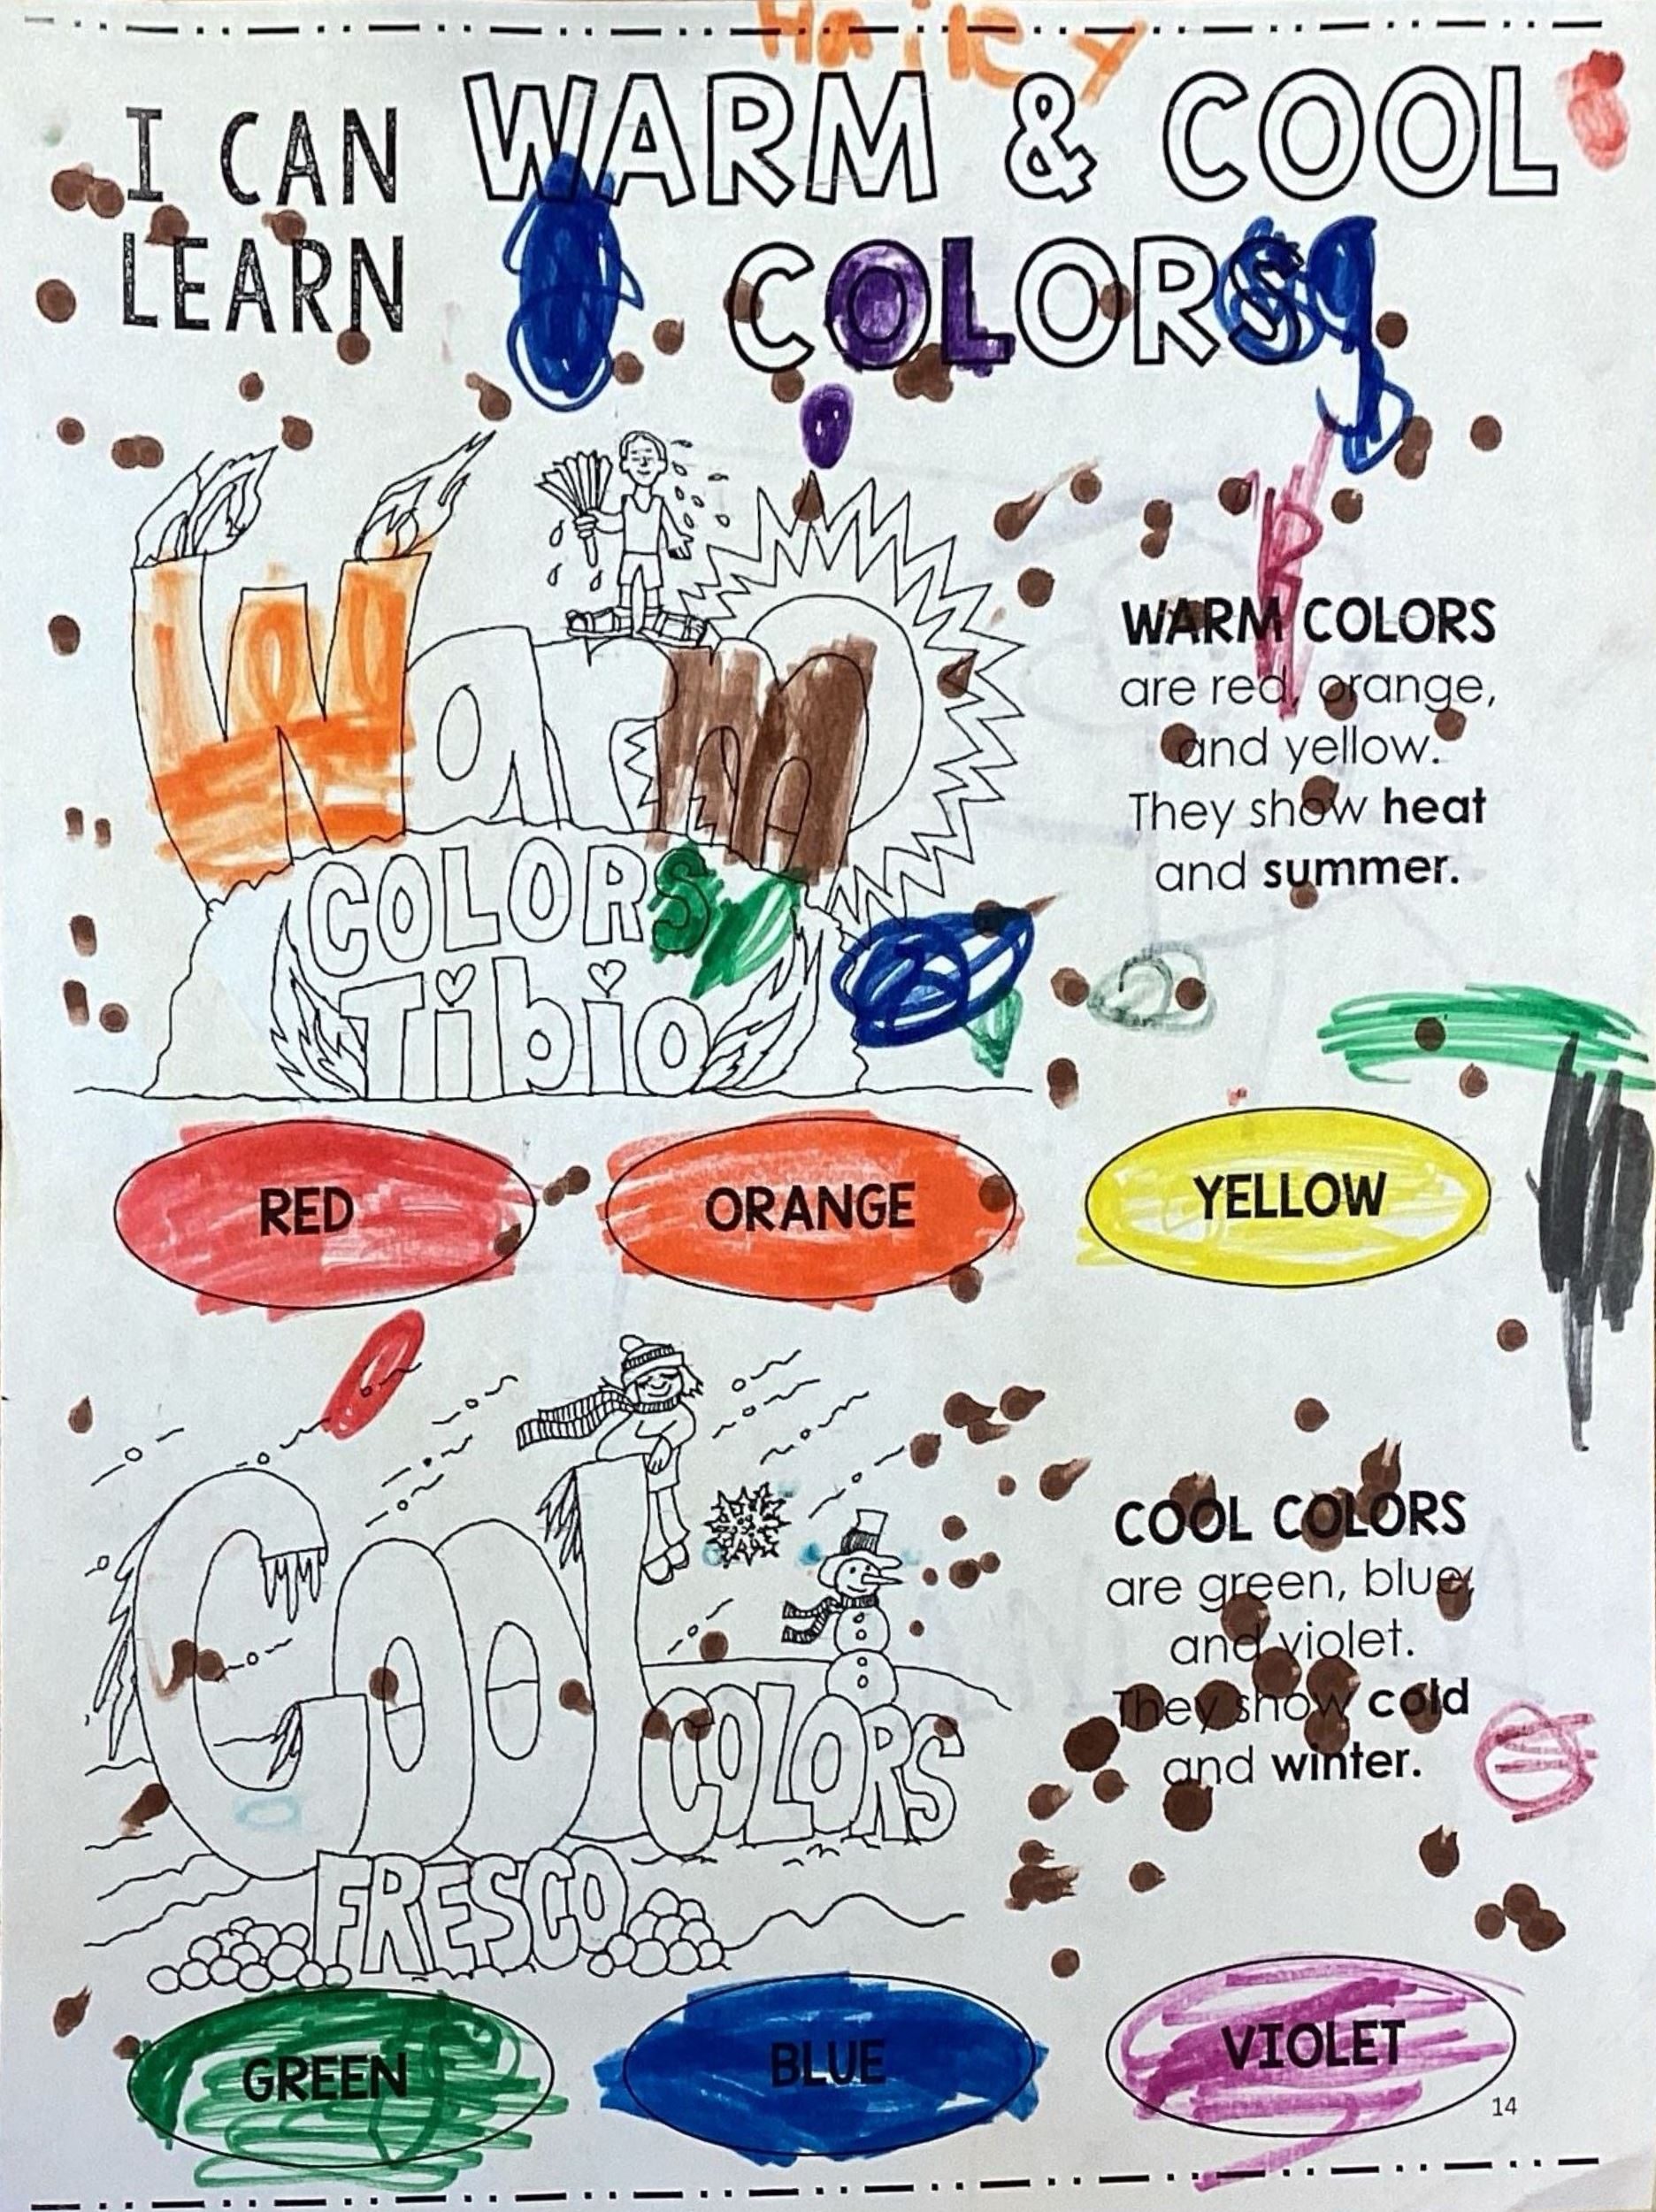 Hailey
I CAN
LEARN
WARM & COOL
COLORS
Warm
COLORS
Tibio
WARM COLORS
are red, orange,
and yellow.
They show heat
and summer.
RED
ORANGE
YELLOW
Cool
COLORS
FRESCO
COOL COLORS
are green, blue,
and violet.
They show cold
and winter.
GREEN
BLUE
VIOLET
14